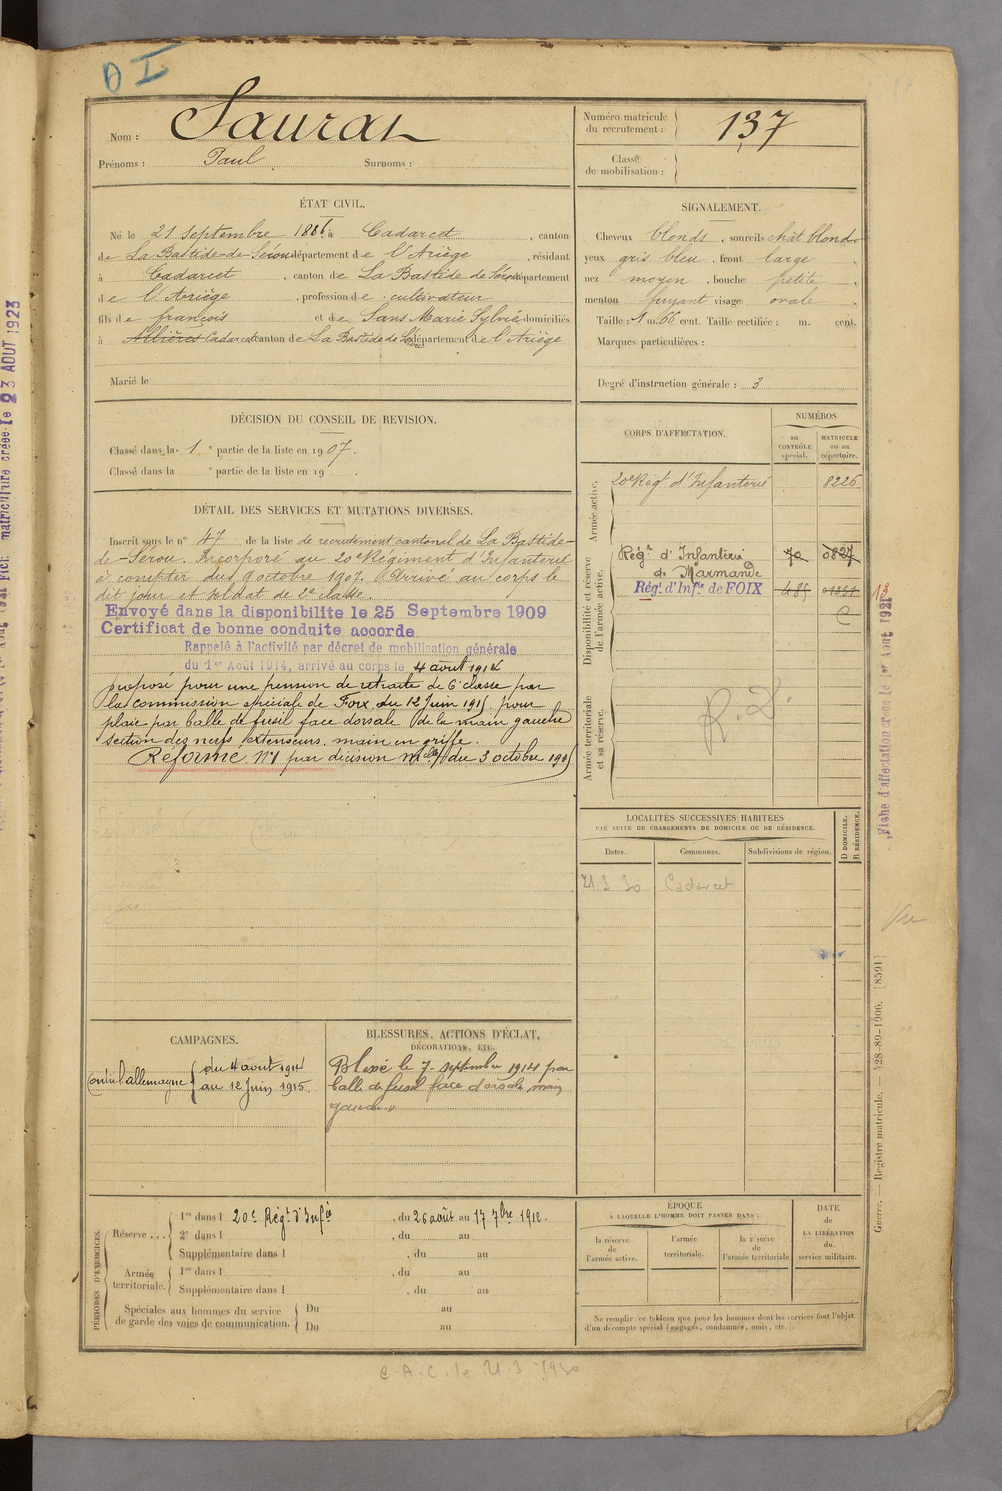 D I
Nom : Saurat
Prénoms : Paul Surnoms :
Numéro matricule
du recrutement : 137
Classe
de mobilisation :
ÉTAT CIVIL.
Né le 21 septembre 1886 à Cadarcet , canton
de La Bastide-de-Sérou département de l'Ariège , résidant
à Cadarcet , canton de La Bastide de Sérou département
de l'Ariège , profession de cultivateur
fils de françois et de Sans Marie Sylvie domiciliés
à Allières Cadarcet canton de La Bastide de Sérou département de l'Ariège
Marié le
SIGNALEMENT.
Cheveux blonds , sourcils chât blonds
yeux gris bleu , front large
nez moyen , bouche petite
menton fuyant visage ovale
Taille : 1 m. 66 cent. Taille rectifiée : m. cent.
Marques particulières :
Degré d'instruction générale : 3
DÉCISION DU CONSEIL DE REVISION.
Classé dans la 1 e partie de la liste en 1907.
Classé dans la e partie de la liste en 19 .
DÉTAIL DES SERVICES ET MUTATIONS DIVERSES.
Inscrit sous le n° 47 de la liste de recrutement cantonal de La Bastide-
de-Sérou. Incorporé au 20e Régiment d'Infanterie
à compter du 9 octobre 1907. Arrivé au corps le
dit jour et soldat de 2e classe.
Envoyé dans la disponibilite le 25 Septembre 1909
Certificat de bonne conduite accorde
Rappelé à l'activité par décret de mobilisation générale
du 1er Août 1914, arrivé au corps le 4 août 1914
proposé pour une pension de retraite de 6e classe par
la commission spéciale de Foix du 12 Juin 1915 pour
plaie par balle de fusil face dorsale de la main gauche
section des nerfs extenseurs, main en griffe.
Réformé N°1 par décision mlle du 3 octobre 1915
CORPS D'AFFECTATION.
NUMÉROS
au
CONTRÔLE
spécial.
MATRICULE
ou au
répertoire.
Armée active.
20e Régt d'Infanterie 8226
Disponibilité et réserve
de l'armée active.
Régt d'Infanterie 70 0827
de Marmande
Régt d'Infie de FOIX 485 01321
C
Armée territoriale
et sa réserve.
R.D.
LOCALITÉS SUCCESSIVES HABITÉES
PAR SUITE DE CHANGEMENTS DE DOMICILE OU DE RÉSIDENCE.
Dates. Communes. Subdivisions de région. D DOMICILE. R RÉSIDENCE.
21.3 30 Cadarcet
CAMPAGNES.
Contre l'allemagne du 4 août 1914
au 12 Juin 1915.
BLESSURES, ACTIONS D'ÉCLAT,
DÉCORATIONS, ETC.
Blessé le 7 septembre 1914 par
balle de fusil face dorsale main
gauche
PÉRIODES D'EXERCICES.
Réserve ... 1re dans l 20e Régt d'Infie , du 26 août au 17 7bre 1912.
2e dans l , du au
Supplémentaire dans l , du au
Armée
territoriale. 1re dans l , du au
Supplémentaire dans l , du au
Spéciales aux hommes du service
de garde des voies de communication. Du au
Du au
ÉPOQUE
À LAQUELLE L'HOMME DOIT PASSER DANS :
la réserve
de
l'armée active.
l'armée
territoriale.
la réserve
de
l'armée territoriale
DATE
de
LA LIBÉRATION
du
service militaire.
Ne remplir ce tableau que pour les hommes dont les services font l'objet
d'un décompte spécial (engagés, condamnés, omis, etc.).
C.A.C. le 21-3-1930
Guerre. — Registre matricule. — 428-89-1906. [8591]
Fiche d'affectation créée le 1er Août 1921
13
Vu
matriculaire créée le 23 AOUT 1923